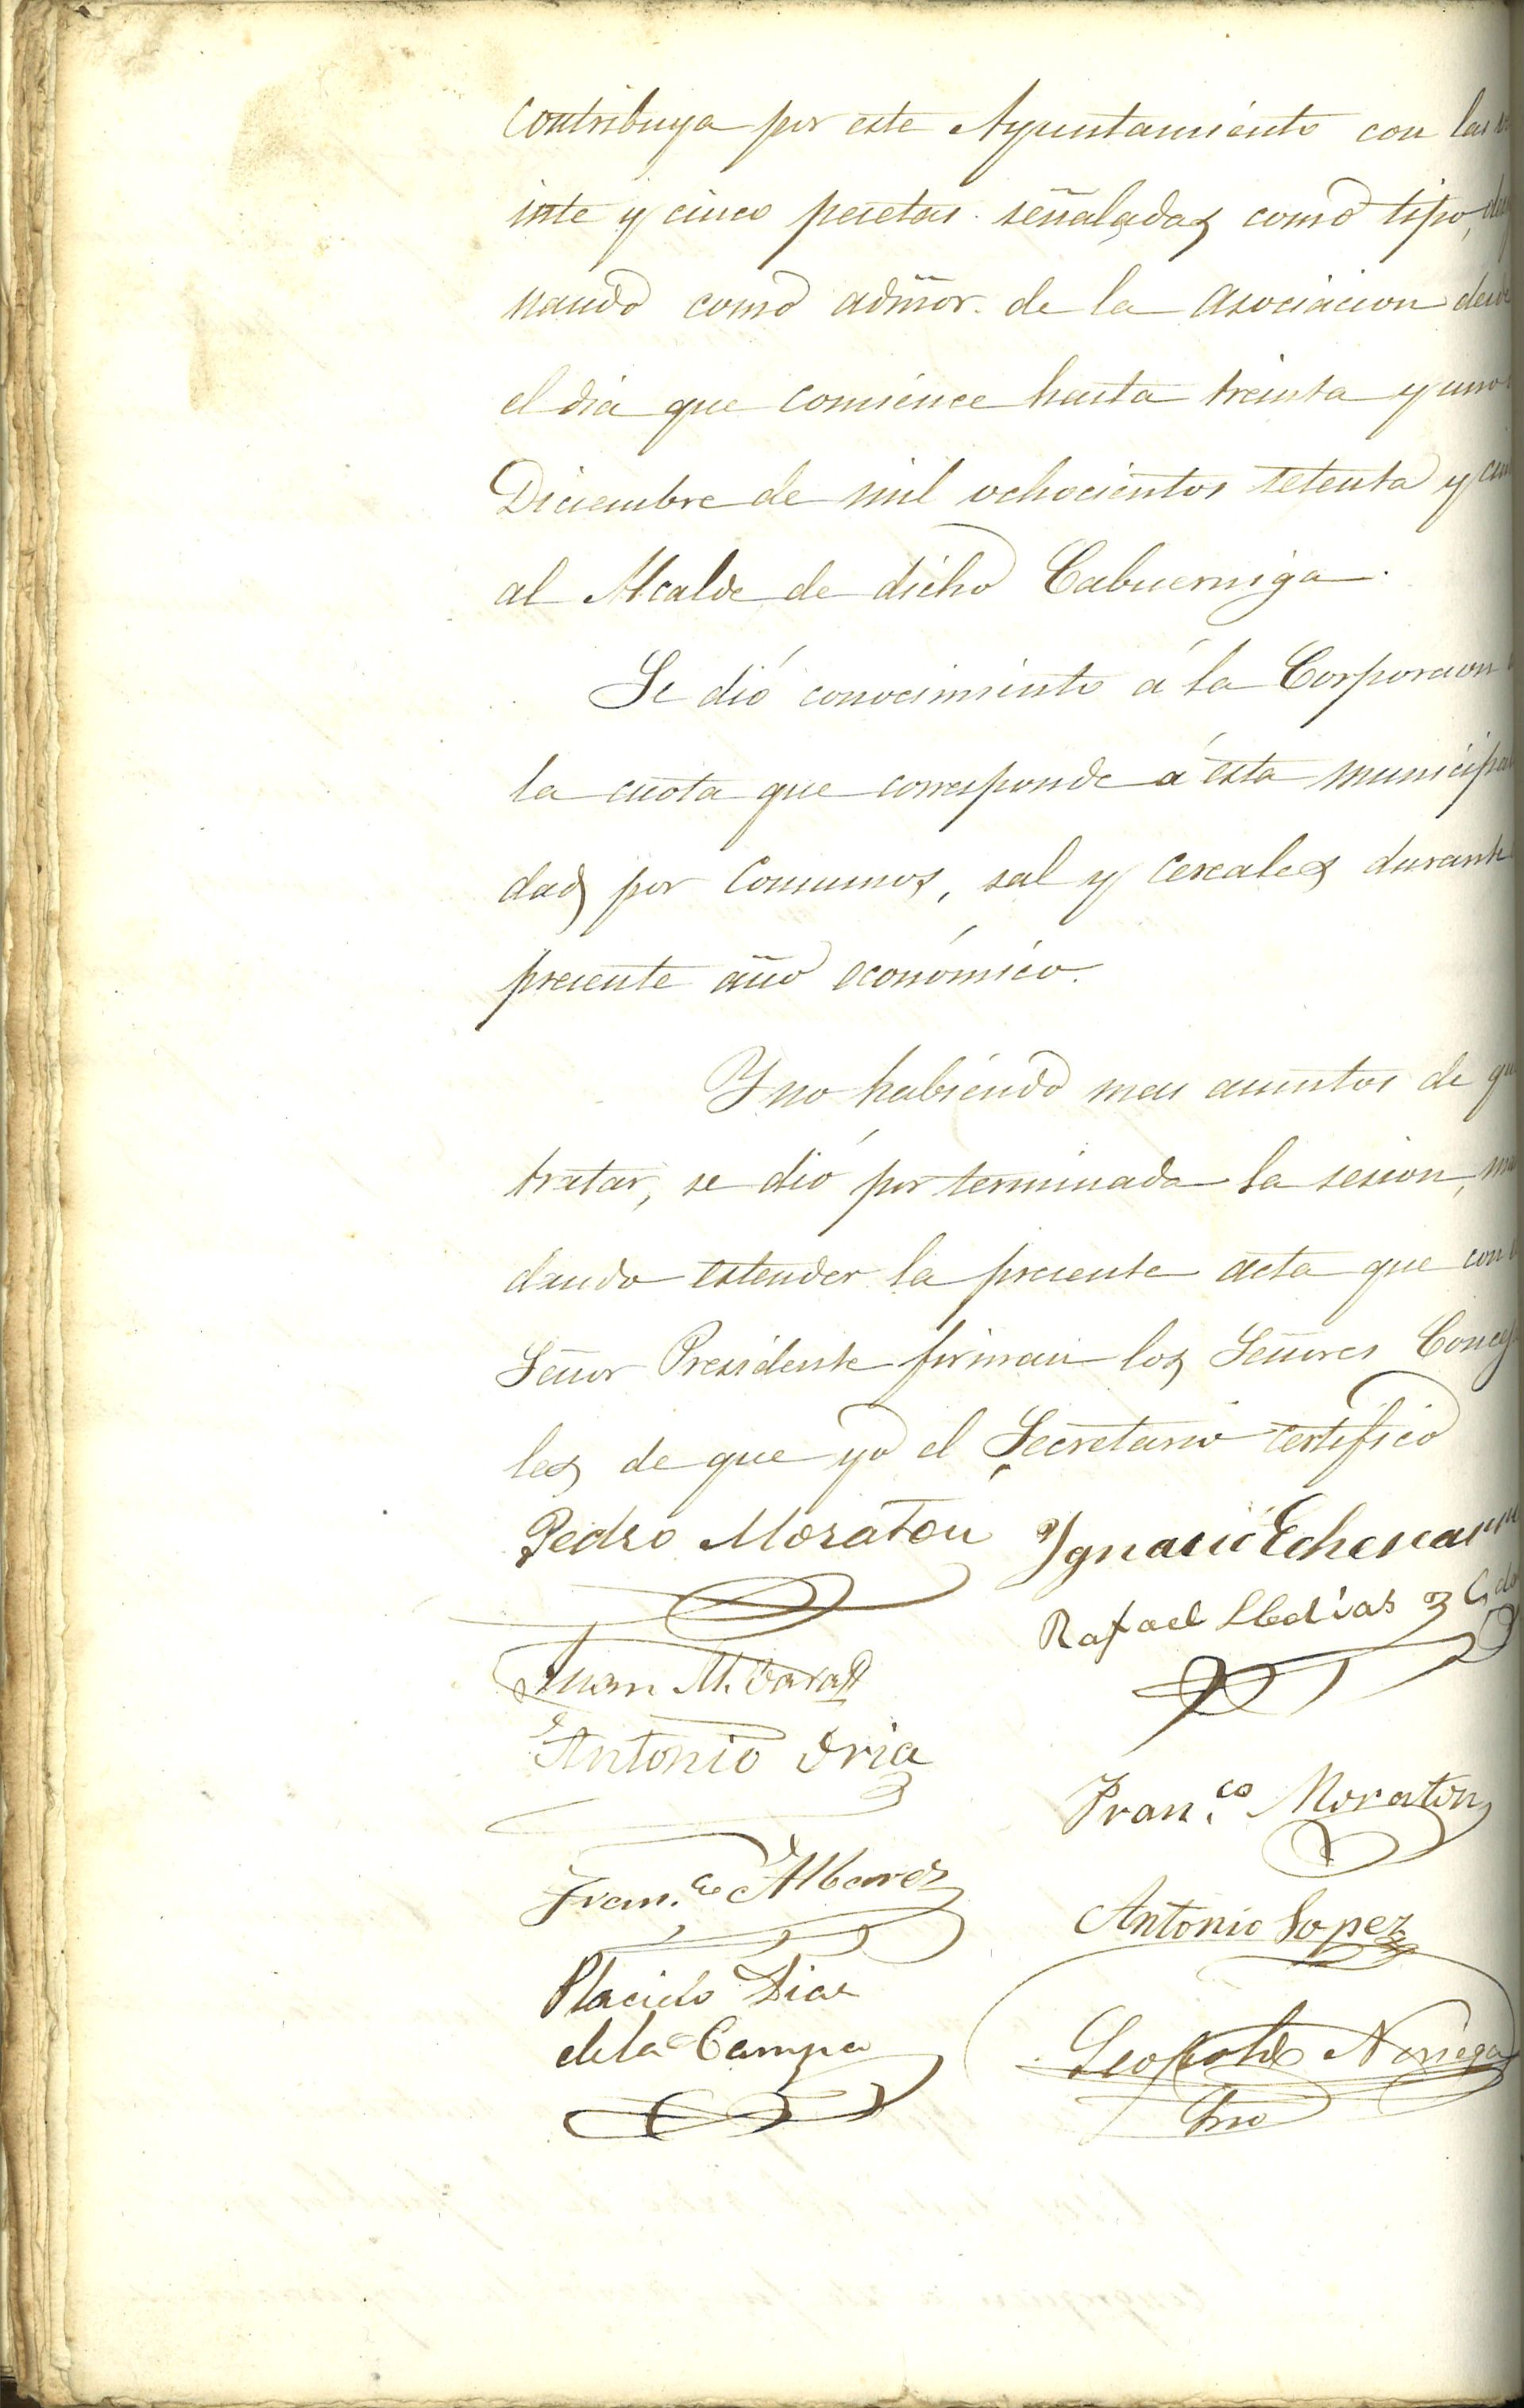 contribuya por este Ayuntamiento con las
inte y cinco pesetas señaladas como tipo,
nando como admor. de la asociacion desde
el dia que comience hasta treinta y uno
Diciembre de mil ochocientos setenta y
al Alcalde de dicho Cabuerniga.
Se dió conocimiento á la Corporacion
la cuota que corresponde á esta municipa
dad por Consumos, sal y cereales durante
presente año económico.
Y no habiendo mas asuntos de
tratar, se dió por terminada la sesion,
dando estender la presente acta que con
Señor Presidente firman los Señores Concej
les de que yo el Secretario certifico
Pedro Moraton Ygnacio
Rafael
Juan M.
Antonio Oria
Fran.co Moraton
Fran.co Albarez
Antonio Lopez
Placido Dias
de la Campa
Leopoldo Noriega
Srio